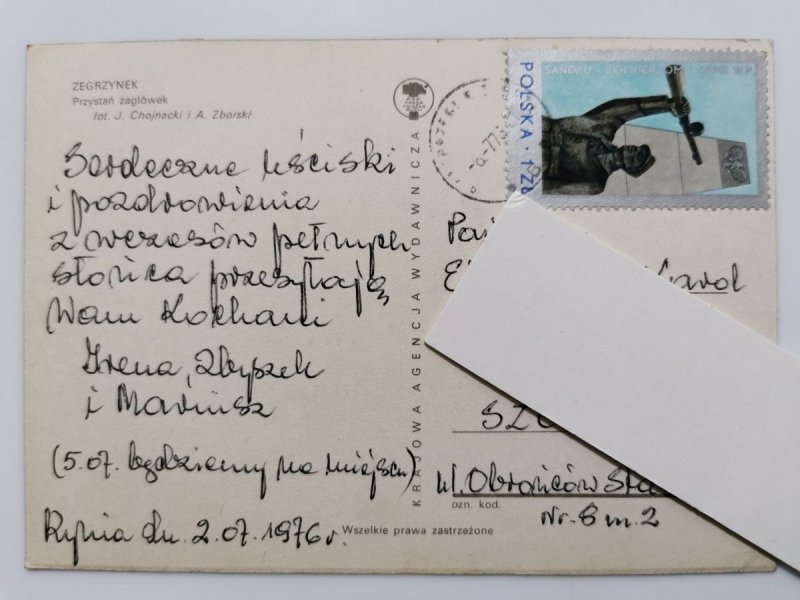 ZEGRZYNEK
Przystań żaglówek
fot. J. Chojnacki i A. Zborski
Serdeczne uściski
i pozdrowienia
z wczasów pełnych
słońca przesyłają
Wam Kochani
Irena, Zbyszek
i Mariusz
(5.07. będziemy na miejscu)
Rynia dn. 2.07.1976 r.
Wszelkie prawa zastrzeżone
KRAJOWA AGENCJA WYDAWNICZA
POLSKA · 1 ZŁ
SANDAU - ŻOŁNIERZOM W.P.
Karol
ul. Obrońców
ozn. kod.
Nr. 8 m. 2